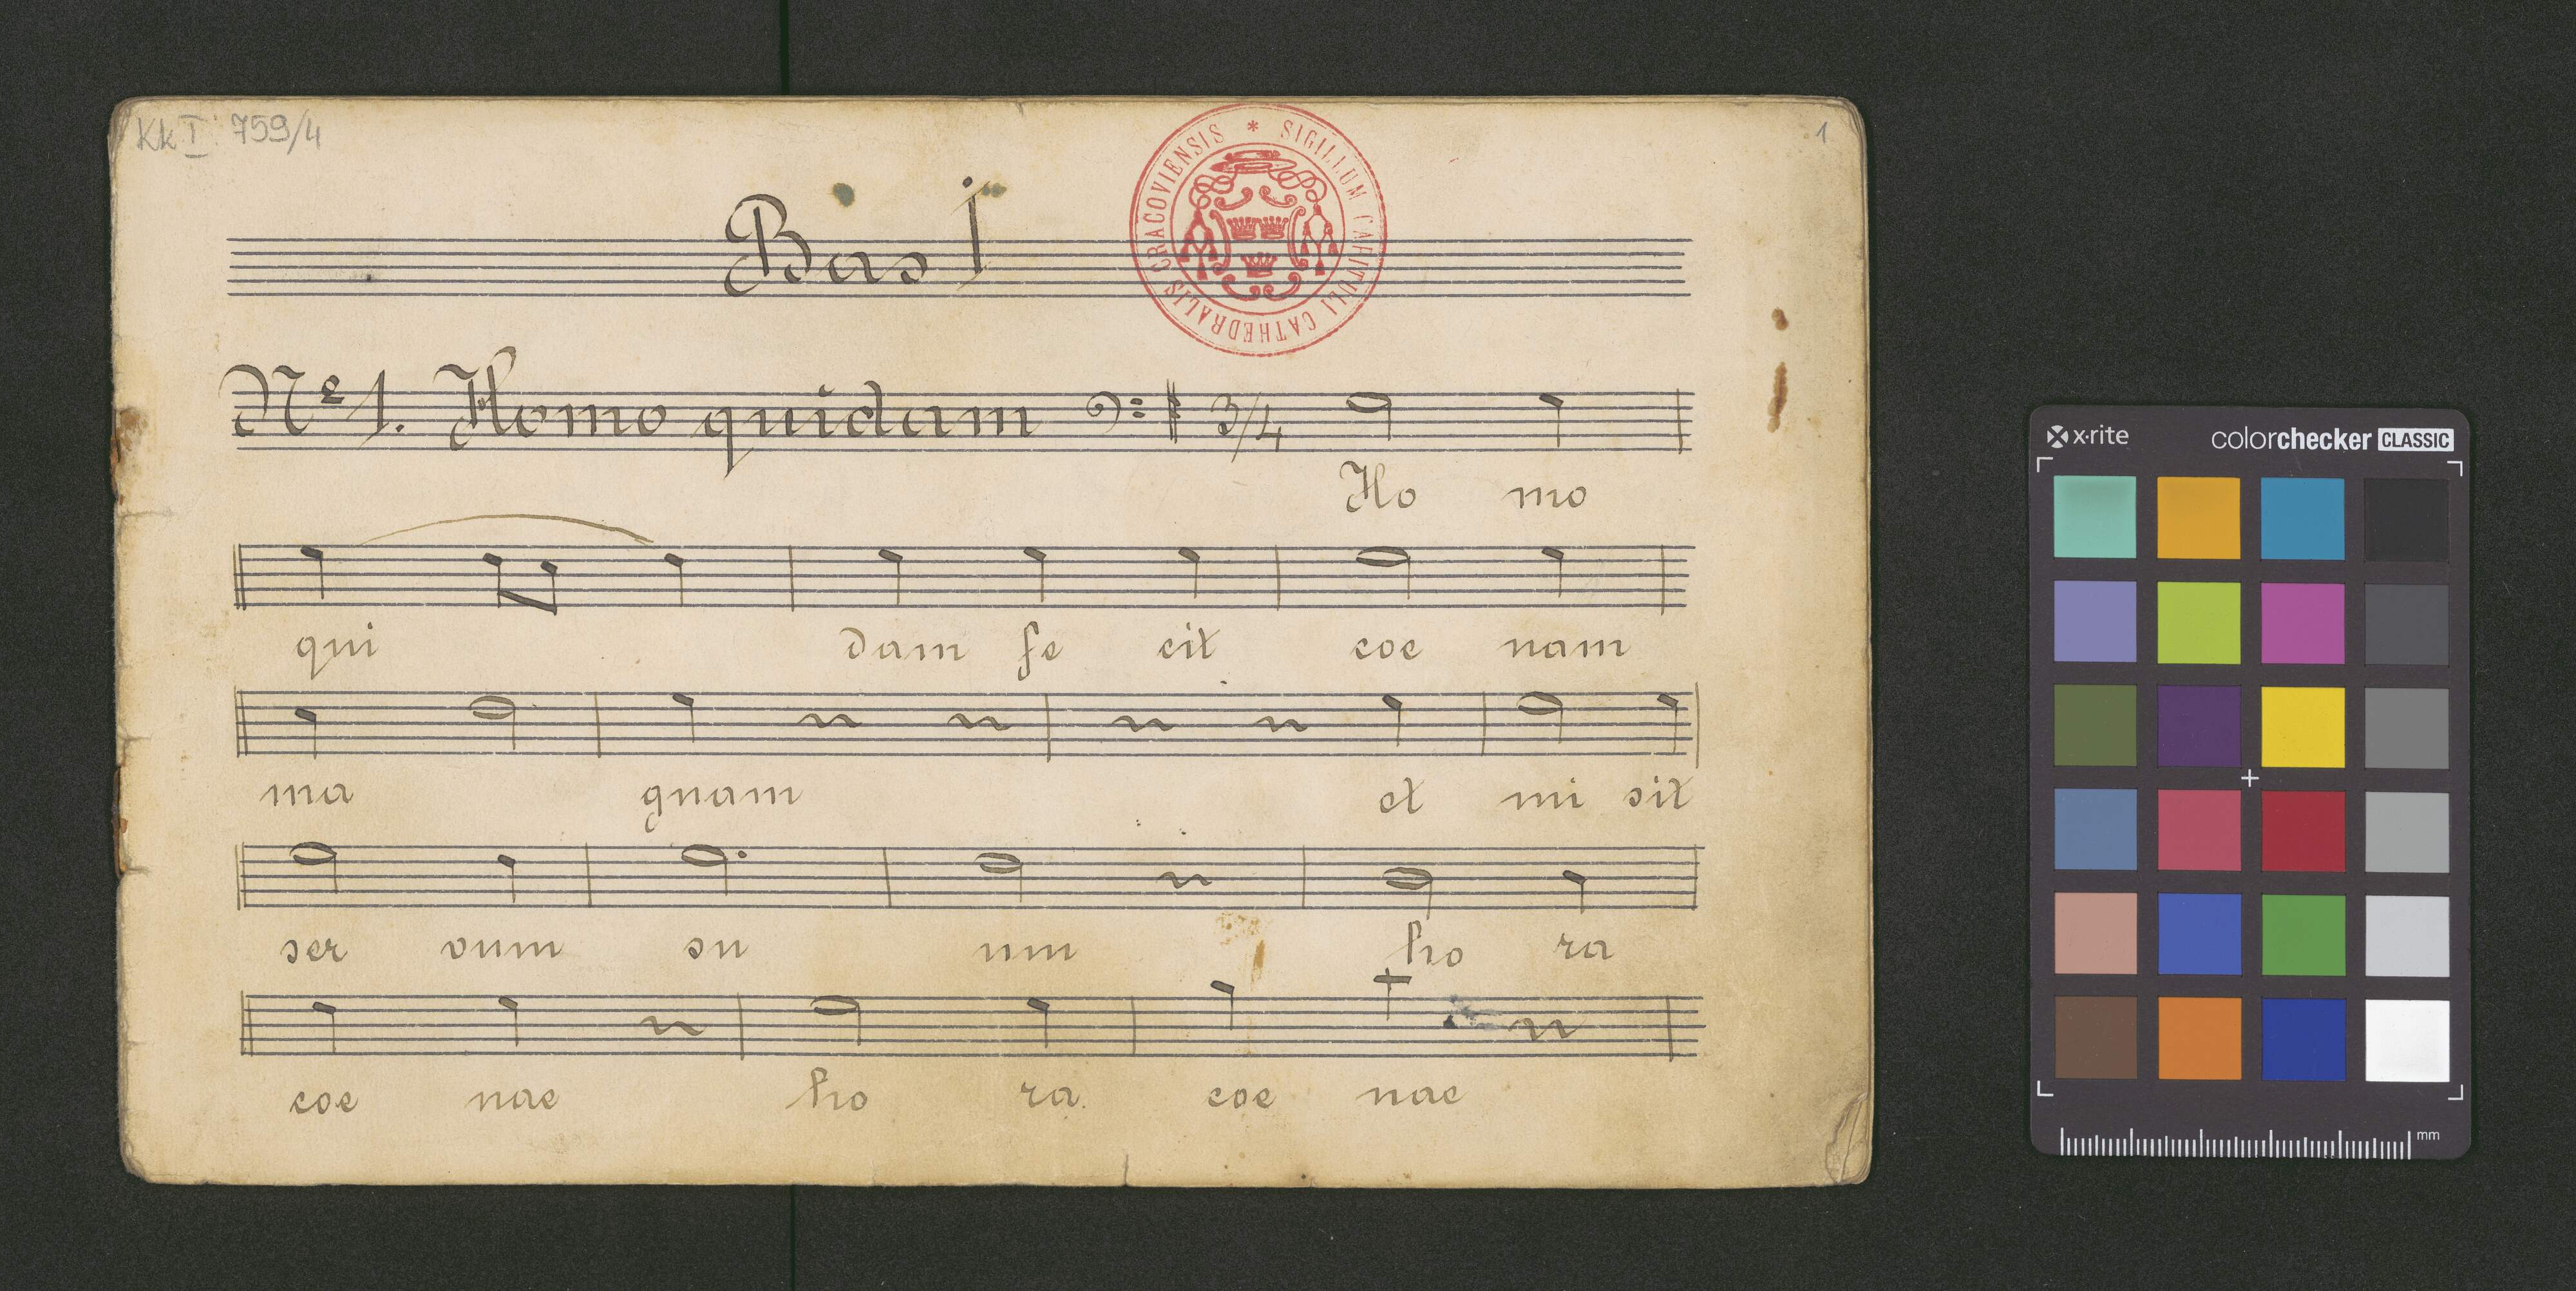 Kk I 759/4
1
Bas I
SIGILLUM CAPITULI CATHEDRALIS CRACOVIENSIS *
No 1. Homo quidam 3/4
Ho mo
qui dam fe cit coe nam
ma gnam et mi sit
ser vum su um ho ra
coe nae ho ra coe nae
x-rite colorchecker CLASSIC
mm